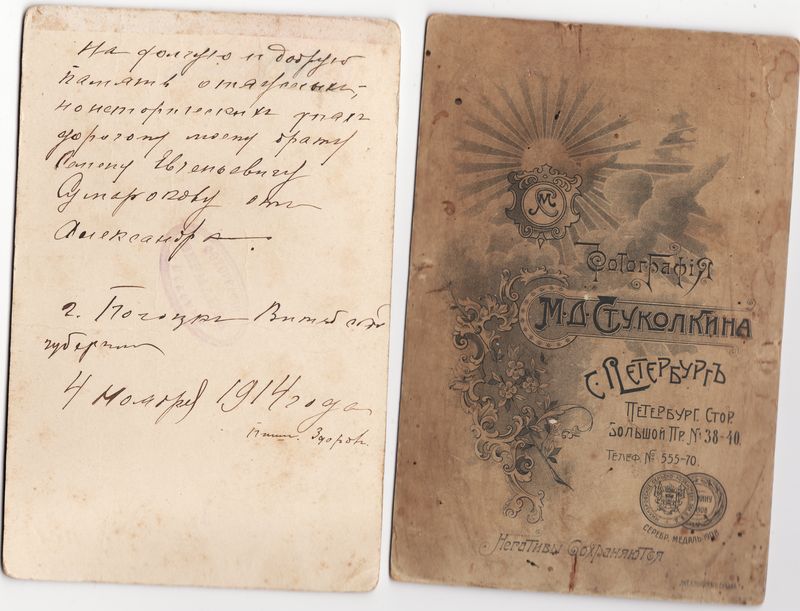 На долгую и добрую
память
исторических
дорогому моему брату
Семену Евгеньевичу
Сумарокову от
Александра.
г. Полоцк Витебской
губернии
4 ноября 1914 года
М
Фотографія
М.Д. Стуколкина
С. Петербургъ
Петербург. Стор.
Большой Пр. № 38-40.
Телеф. № 555-70.
Серебр. медаль
Негативы сохраняются